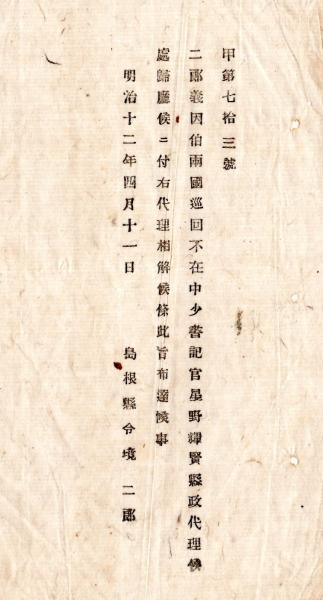 甲第七拾三號
二郎義因伯兩國巡回不在中少書記官星野輝賢縣政代理候
處歸廳候ニ付右代理相解候條此旨布達候事
明治十二年四月十一日 島根縣令境二郎